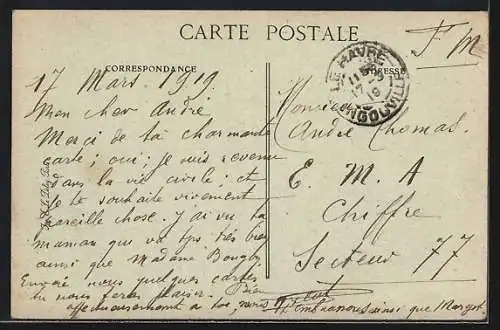 CARTE POSTALE
F M
CORRESPONDANCE
ADRESSE
LE HAVRE
17-3
19
INGOUVILLE
17 Mars 1919.
Mon cher André
Merci de ta charmante
carte; oui, je suis revenu
dans la vie civile; et
je te souhaite vivement
pareille chose. J'ai vu ta
maman qui va tjs. très bien
ainsi que Madame
Envoie nous quelques cartes
tu nous feras plaisir. Bien
affectueusement à toi,
t'embrassons ainsi que Margot
Monsieur
André Thomas.
E. M. A
Chiffre
Secteur 77